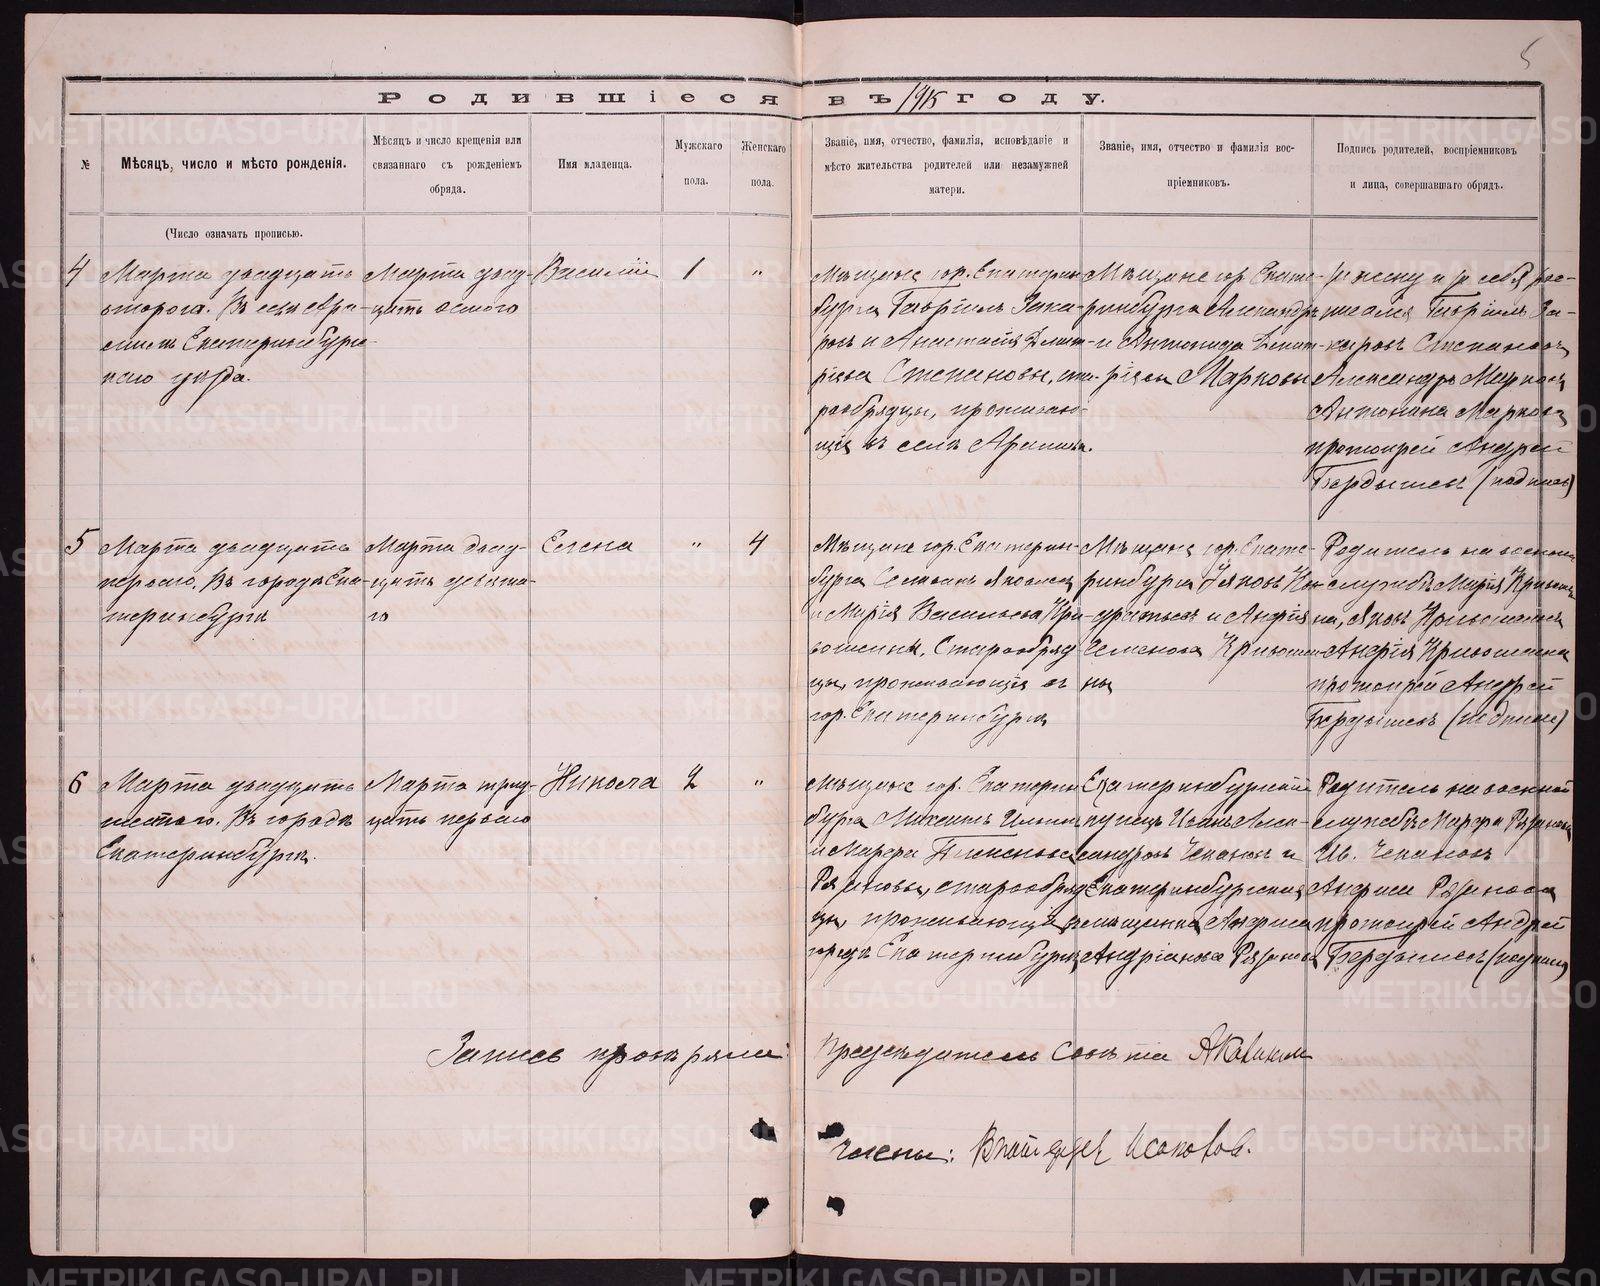 5
Родившіеся въ 1915 году.
№
Мѣсяцъ, число и мѣсто рожденія.
Мѣсяцъ и число крещенія или
связаннаго съ рожденіемъ
обряда.
Имя младенца.
Мужскаго
пола.
Женскаго
пола.
Званіе, имя, отчество, фамилія, исповѣданіе и
мѣсто жительства родителей или незамужней
матери.
Званіе, имя, отчество и фамилія вос-
пріемниковъ.
Подпись родителей, воспріемниковъ
и лица, совершавшаго обрядъ.
(Число означать прописью.
4
Марта двадцать
второго. Въ селѣ Ара-
милѣ Екатеринбург-
скаго уѣзда.
Марта двад-
цать осмого
Василій
1
"
Мѣщане гор. Екатерин
бурга Гавріилъ Заха-
ровъ и Анастасія Димит-
ріева Степановы, ста-
рообрядцы, проживаю-
щіе въ селѣ Арамилѣ.
Мѣщане гор. Екате-
ринбурга Александръ
и Антонида Димит-
ріевы Марковы
За жену и за себя рос-
писался Гавріилъ За-
харовъ Степановъ
Александръ Марковъ
Антонина Маркова
протоіерей Андрей
Бердышевъ (подпись)
5
Марта двадцать
перваго. Въ городѣ Ека-
теринбургѣ
Марта двад-
цать девята-
го
Елена
"
4
Мѣщане гор. Екатерин-
бурга Севастьянъ Яковлевъ
и Марія Васильева Кри-
вошеины. Старообряд
цы, проживающіе въ
гор. Екатеринбургѣ
Мѣщане гор. Екате-
ринбурга Яковъ Кон-
дратьевъ и Анфія
Семенова Кривошеи-
ны
Родитель на военной
службѣ Марія Кривошеи
на, Яковъ Кривошеинъ
Анфія Кривошеина
протоіерей Андрей
Бердышевъ (подпись)
6
Марта двадцать
шестого. Въ городѣ
Екатеринбургѣ.
Марта трид-
цать перваго
Никола
2
"
Мѣщане гор. Екатерин
бурга Михаилъ Ильинъ
и Марфа Алексѣевна
Рязановы, старообряд
цы, проживающіе въ
городѣ Екатеринбургѣ
Екатеринбургскій
купецъ Иванъ Алек-
сандровъ Чекановъ и
Екатеринбургская
мѣщанка Анфиса
Андріанова Рязанова
Родитель на военной
службѣ Марфа Рязанова
Ив. Чекановъ
Анфиса Рязанова
протоіерей Андрей
Бердышевъ (подпись)
Запись провѣряли:
Предсѣдатель Совѣта
Члены:
METRIKI.GASO-URAL.RU